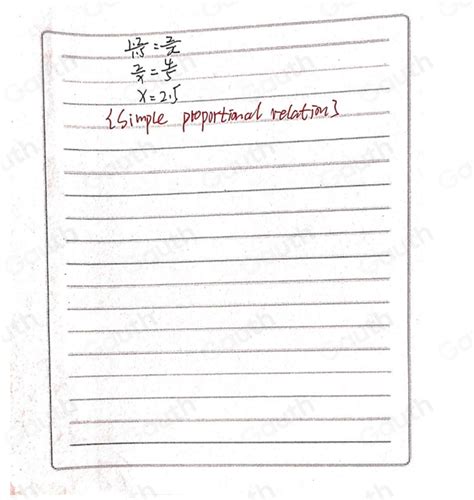 1.2/1.5 = 2/x
2/x = 4/5
x = 2.5
{Simple proportional relation}
Gauth